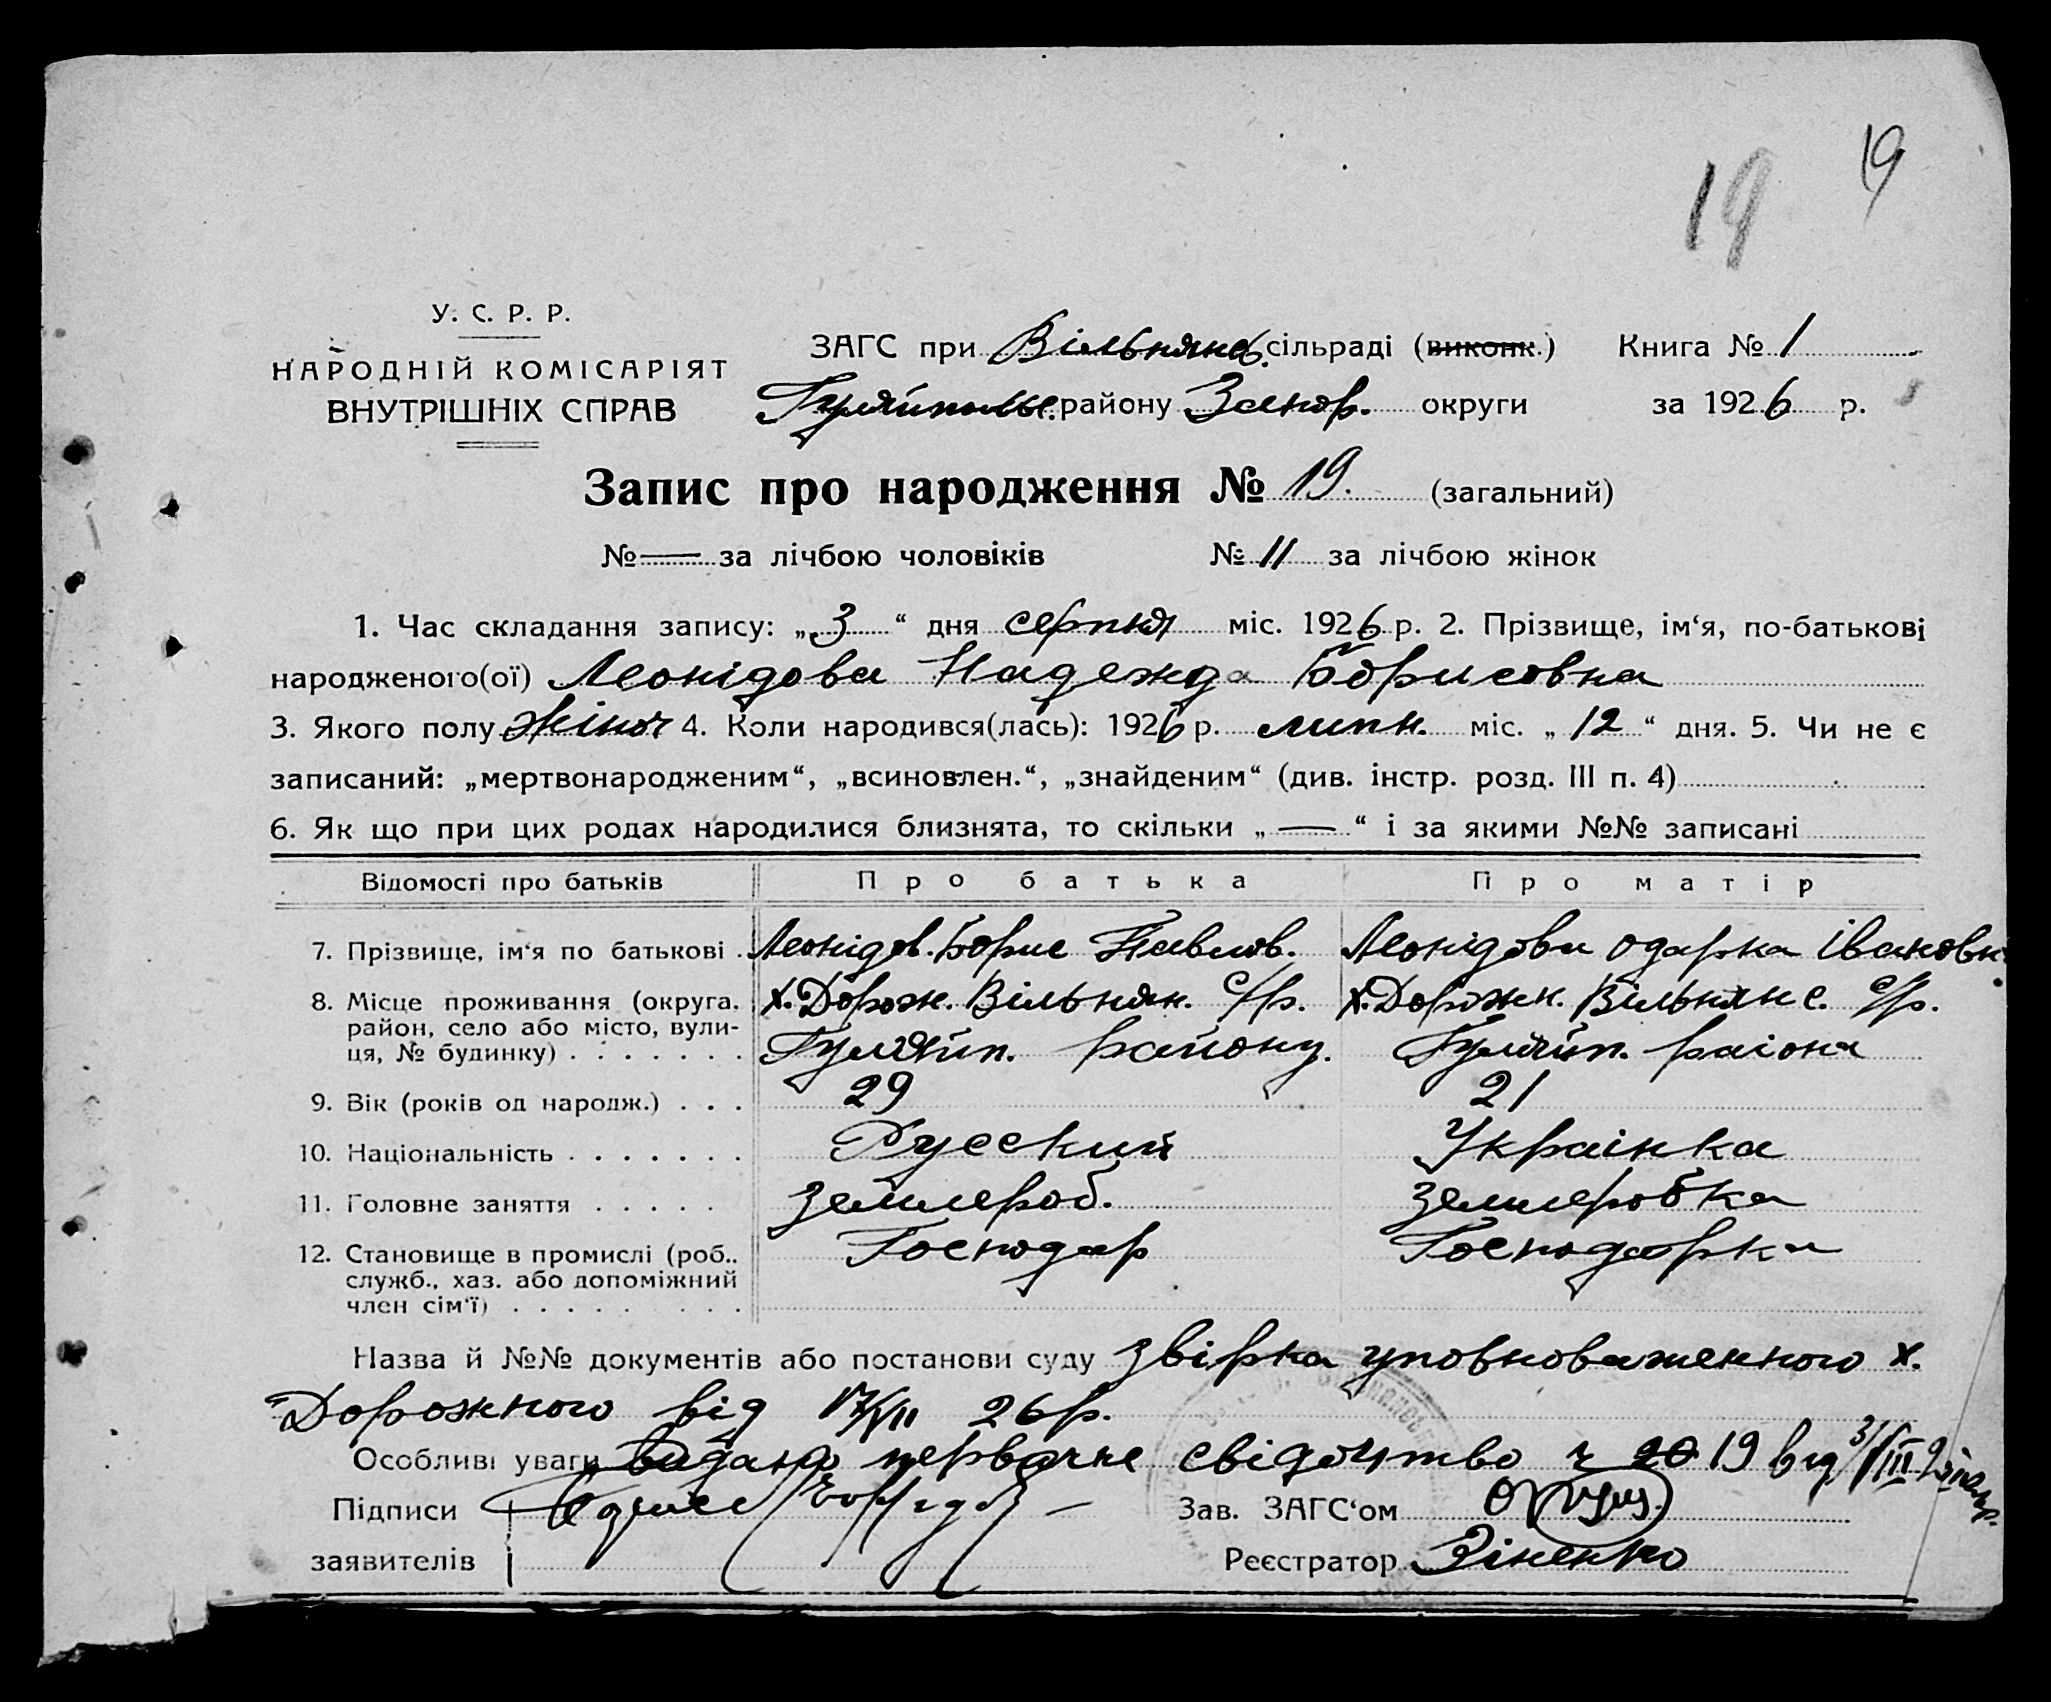 19
19
У. С. Р. Р.
НАРОДНІЙ КОМІСАРІЯТ
ВНУТРІШНІХ СПРАВ
ЗАГС при Вільнянс. сільраді (виконк.) Книга № 1
Гуляйпольс. району Запор. округи за 1926 р.
Запис про народження № 19. (загальний)
№ — за лічбою чоловіків № 11 за лічбою жінок
1. Час складання запису: „3“ дня серпня міс. 1926 р. 2. Прізвище, ім‘я, по-батькові
народженого(ої) Леонідова Надежда Борисовна
3. Якого полу жіноч 4. Коли народився(лась): 1926 р. липн. міс. „12“ дня. 5. Чи не є
записаний: „мертвонародженим“, „всиновлен.“, „знайденим“ (див. інстр. розд. III п. 4)
6. Як що при цих родах народилися близнята, то скільки „—“ і за якими №№ записані
Відомості про батьків Про батька Про матір
7. Прізвище, ім‘я по батькові . Леонідов. Борис Павлов. Леонідова Одарка Івановн.
8. Місце проживання (округа, х. Дорожн. Вільнян. с/р. х. Дорожн. Вільнянс. с/р.
район, село або місто, вули-
ця, № будинку) . . . . . . . Гуляйп. району. Гуляйп. раіона
9. Вік (років од народж.) . . . 29 21
10. Національність . . . . . . . Русский Українка
11. Головне заняття . . . . . землероб. землеробка
12. Становище в промислі (роб., Господар Господарка
служб., хаз. або допоміжний
член сім‘ї) . . . . . . . . .
Назва й №№ документів або постанови суду звірка уповноваженного х.
Дорожного від 17/VII 26 р.
Особливі уваги Видано первачне свідоцтво ч 20 19 від 3/VIII 26
Підписи Зав. ЗАГС‘ом
заявителів Реєстратор Зіненко